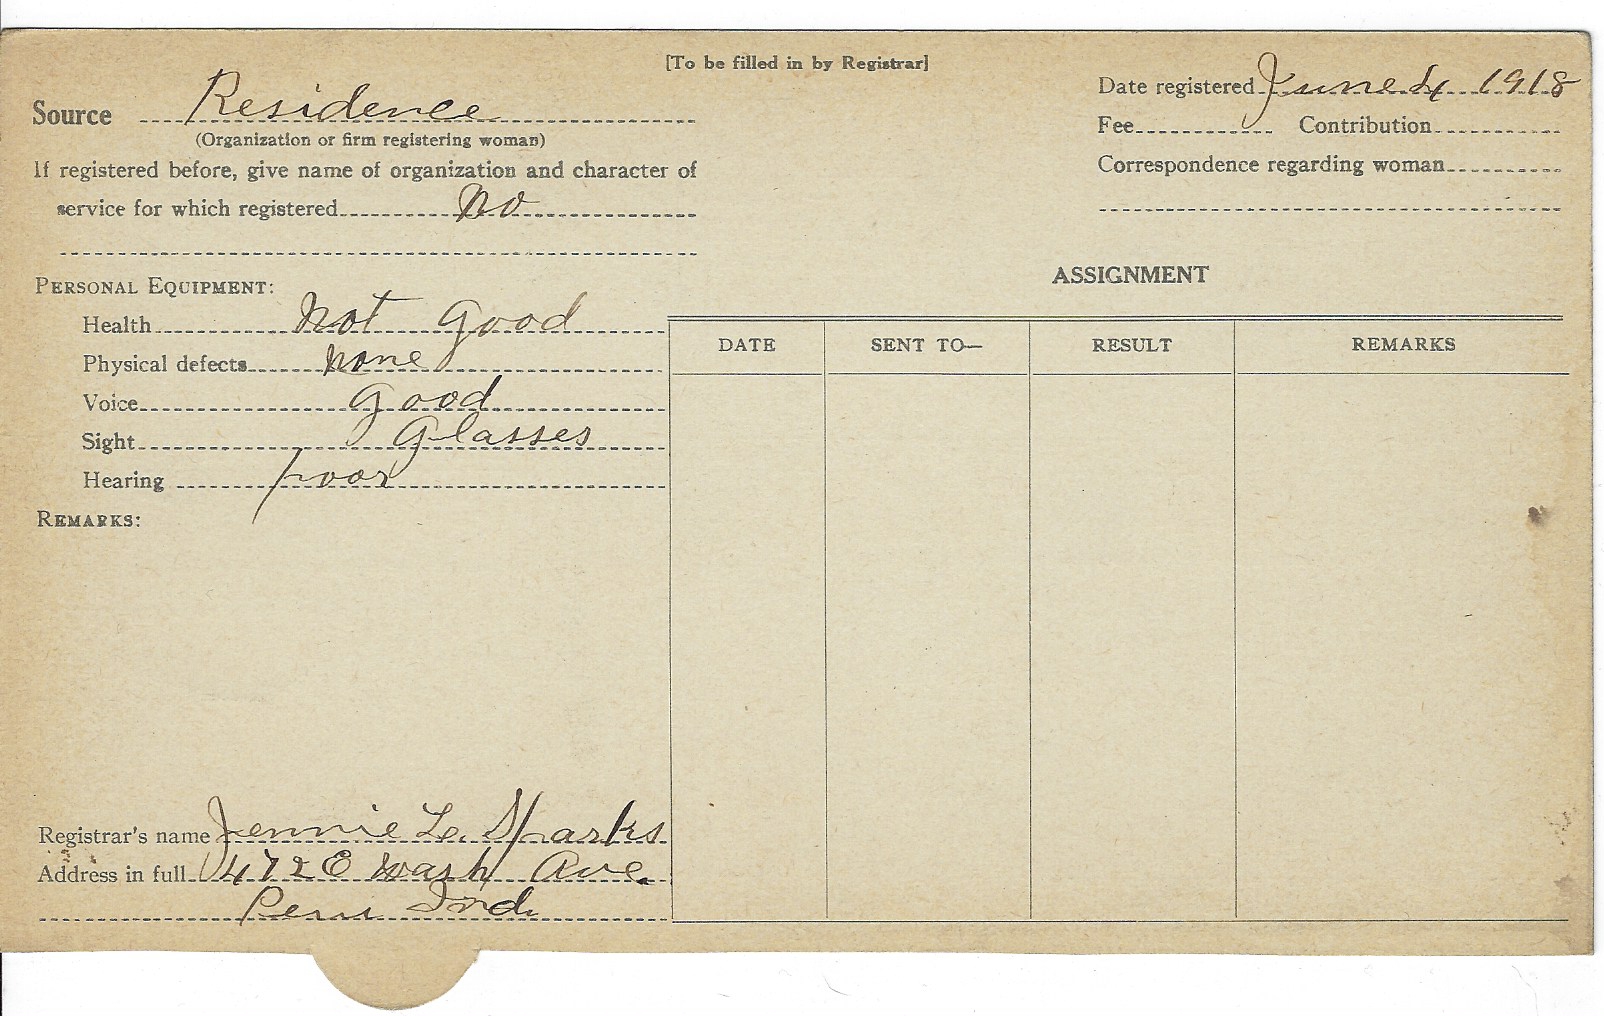 [To be filled in by Registrar]
Source Residence
(Organization or firm registering woman)
If registered before, give name of organization and character of
service for which registered no
Date registered June 4 1918
Fee Contribution
Correspondence regarding woman
PERSONAL EQUIPMENT:
Health not good
Physical defects none
Voice good
Sight Glasses
Hearing poor
REMARKS:
ASSIGNMENT
DATE SENT TO— RESULT REMARKS
Registrar's name Jennie L. Sparks
Address in full 472 E Wash Ave.
Peru Ind.